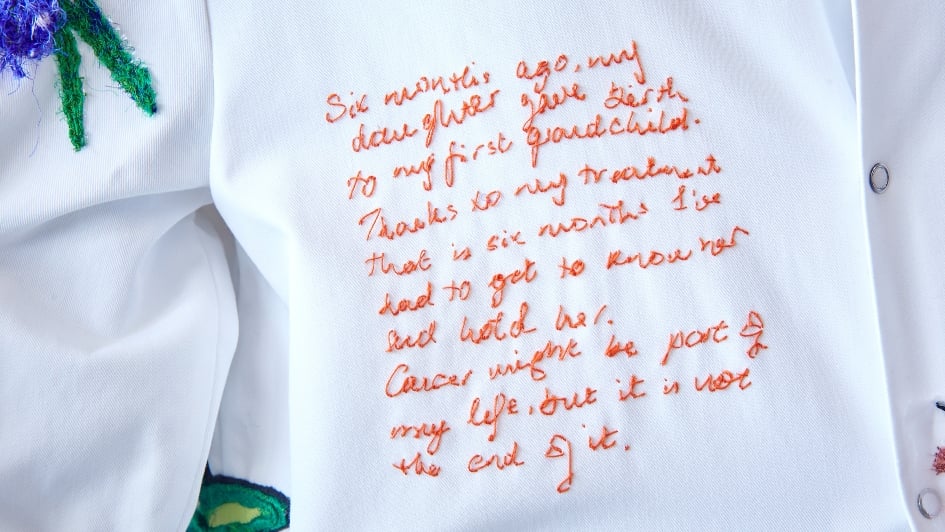 Six months ago, my
daughter gave birth
to my first grandchild.
Thanks to my treatment
that is six months I've
had to get to know her
and hold her.
Cancer might be part of
my life, but it is not
the end of it.